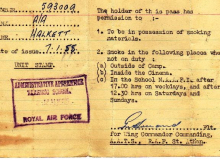 593009
A/A
HALKETT
Date of issue. 7.1.55.
UNIT STAMP.
ADMINISTRATIVE APPRENTICE
TRAINING SCHOOL
ROYAL AIR FORCE
The holder of this pass has
permission to :-
1. To be in possession of smoking
materials.
2. Smoke in the following places when
not on duty :
(a) Outside of Camp.
(b) Inside the Cinema.
(c) In the School N.A.A.F.I. after
17.00 hrs on weekdays, and after
12.30 hrs on Saturdays and
Sundays.
for Wing Commander Commanding,
A.A.T.S., R.A.F. St. Athan.